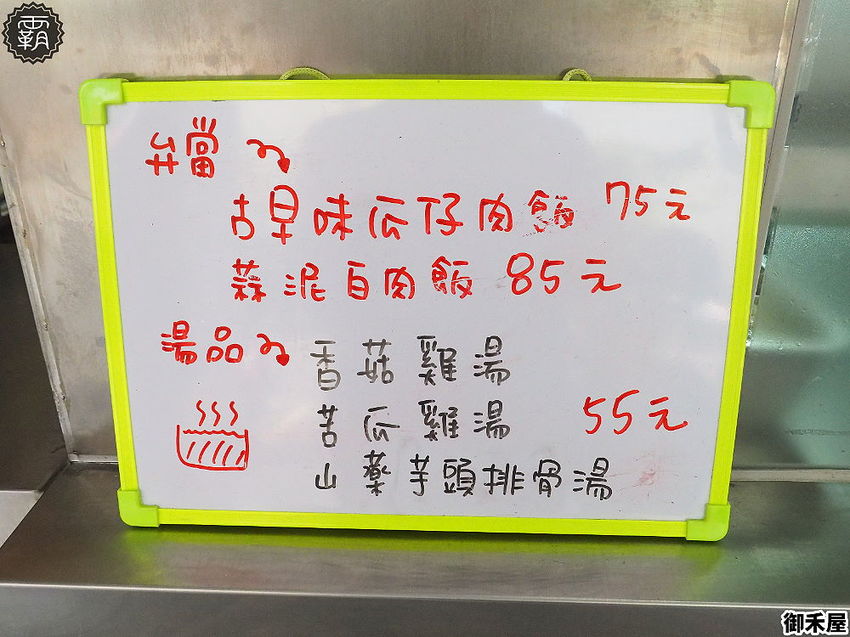 霸
弁當
古早味瓜仔肉飯 75元
蒜泥白肉飯 85元
湯品
香菇雞湯
苦瓜雞湯 55元
山藥芋頭排骨湯
御禾屋